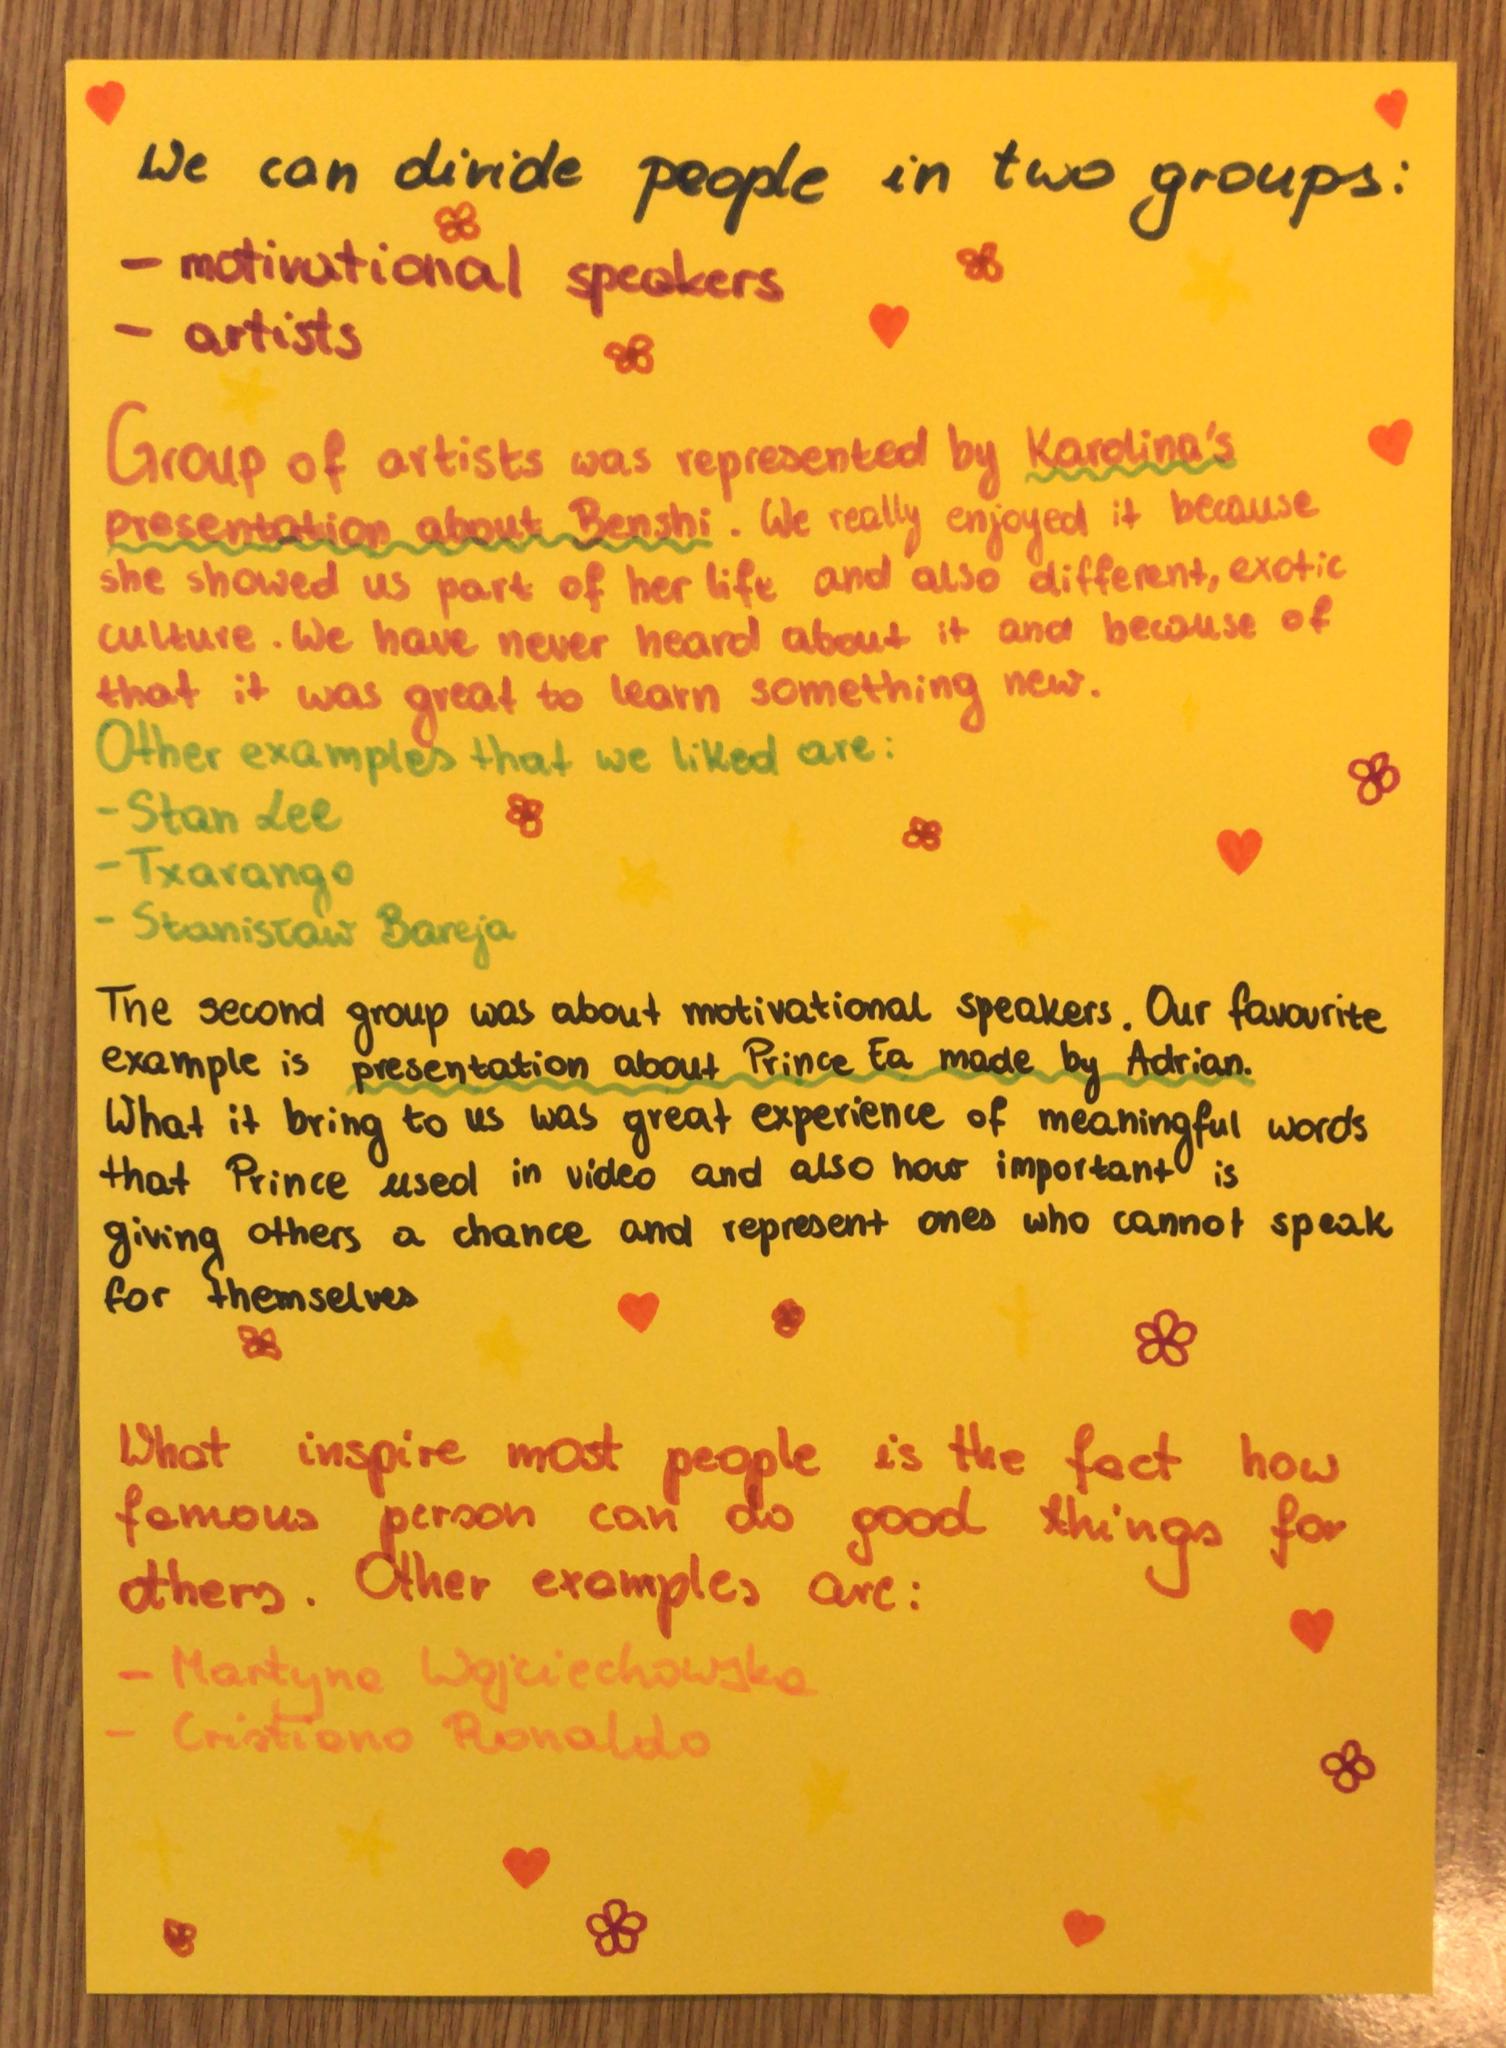 We can divide people in two groups:
- motivational speakers
- artists
Group of artists was represented by Karolina's
presentation about Benshi. We really enjoyed it because
she showed us part of her life and also different, exotic
culture. We have never heard about it and because of
that it was great to learn something new.
Other examples that we liked are:
- Stan Lee
- Txarango
- Stanisław Bareja
The second group was about motivational speakers. Our favourite
example is presentation about Prince Ea made by Adrian.
What it bring to us was great experience of meaningful words
that Prince used in video and also how important is
giving others a chance and represent ones who cannot speak
for themselves
What inspire most people is the fact how
famous person can do good things for
others. Other examples are:
- Martyna Wojciechowska
- Cristiano Ronaldo